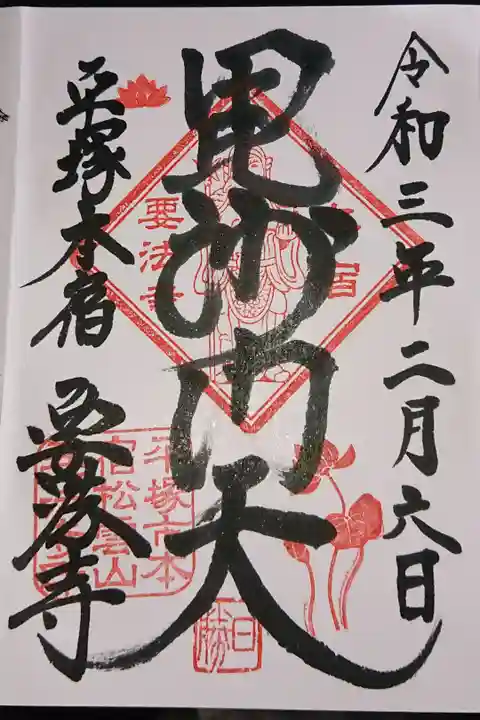 令和三年二月六日
毘沙門天
平塚本宿
要法寺
要法寺
宿
平塚市本
宿松雲山